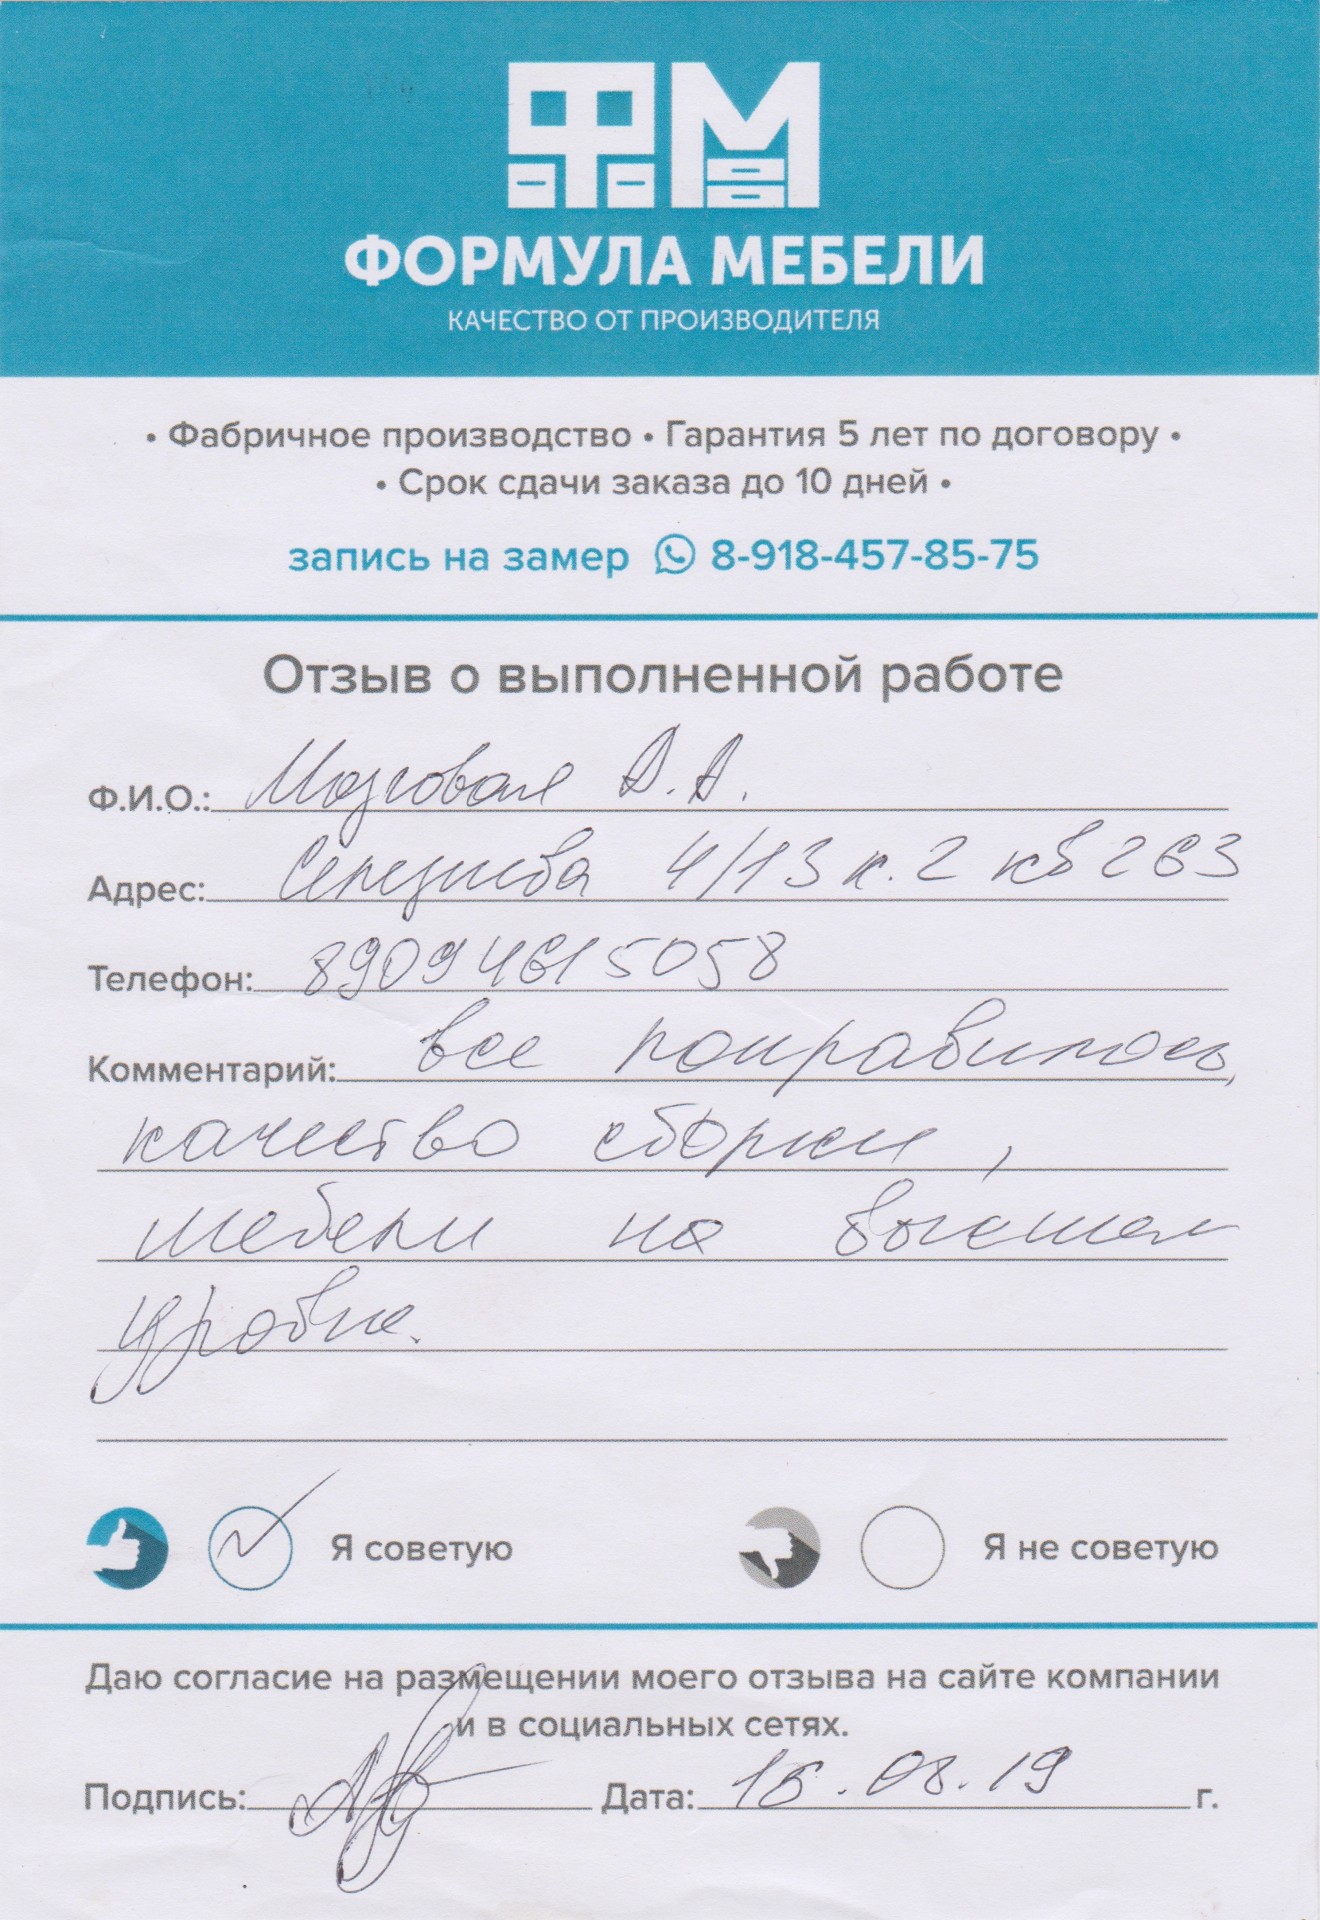 ФМ
ФОРМУЛА МЕБЕЛИ
КАЧЕСТВО ОТ ПРОИЗВОДИТЕЛЯ
• Фабричное производство • Гарантия 5 лет по договору •
• Срок сдачи заказа до 10 дней •
запись на замер 8-918-457-85-75
Отзыв о выполненной работе
Ф.И.О.: Мозговая А.А.
Адрес: 4/13 к. 2 кв 263
Телефон: 89094615058
Комментарий: все понравилось,
качество сборки,
мебели на высшем
уровне.
Я советую Я не советую
Даю согласие на размещении моего отзыва на сайте компании
и в социальных сетях.
Подпись: Дата: .08.19 г.